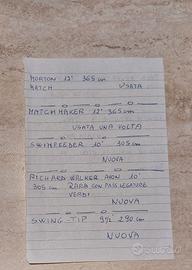 MORTON 12' 365 cm
MATCH USATA
MATCH MAKER 12' 365 cm
USATA UNA VOLTA
SWIMFEEDER 10' 305 cm
NUOVA
RICHARD WALKER AVON 10'
305 cm RARA CON PASSLEGATURE
VERDI
NUOVA
SWING-TIP 9½ 290 cm
NUOVA
subito